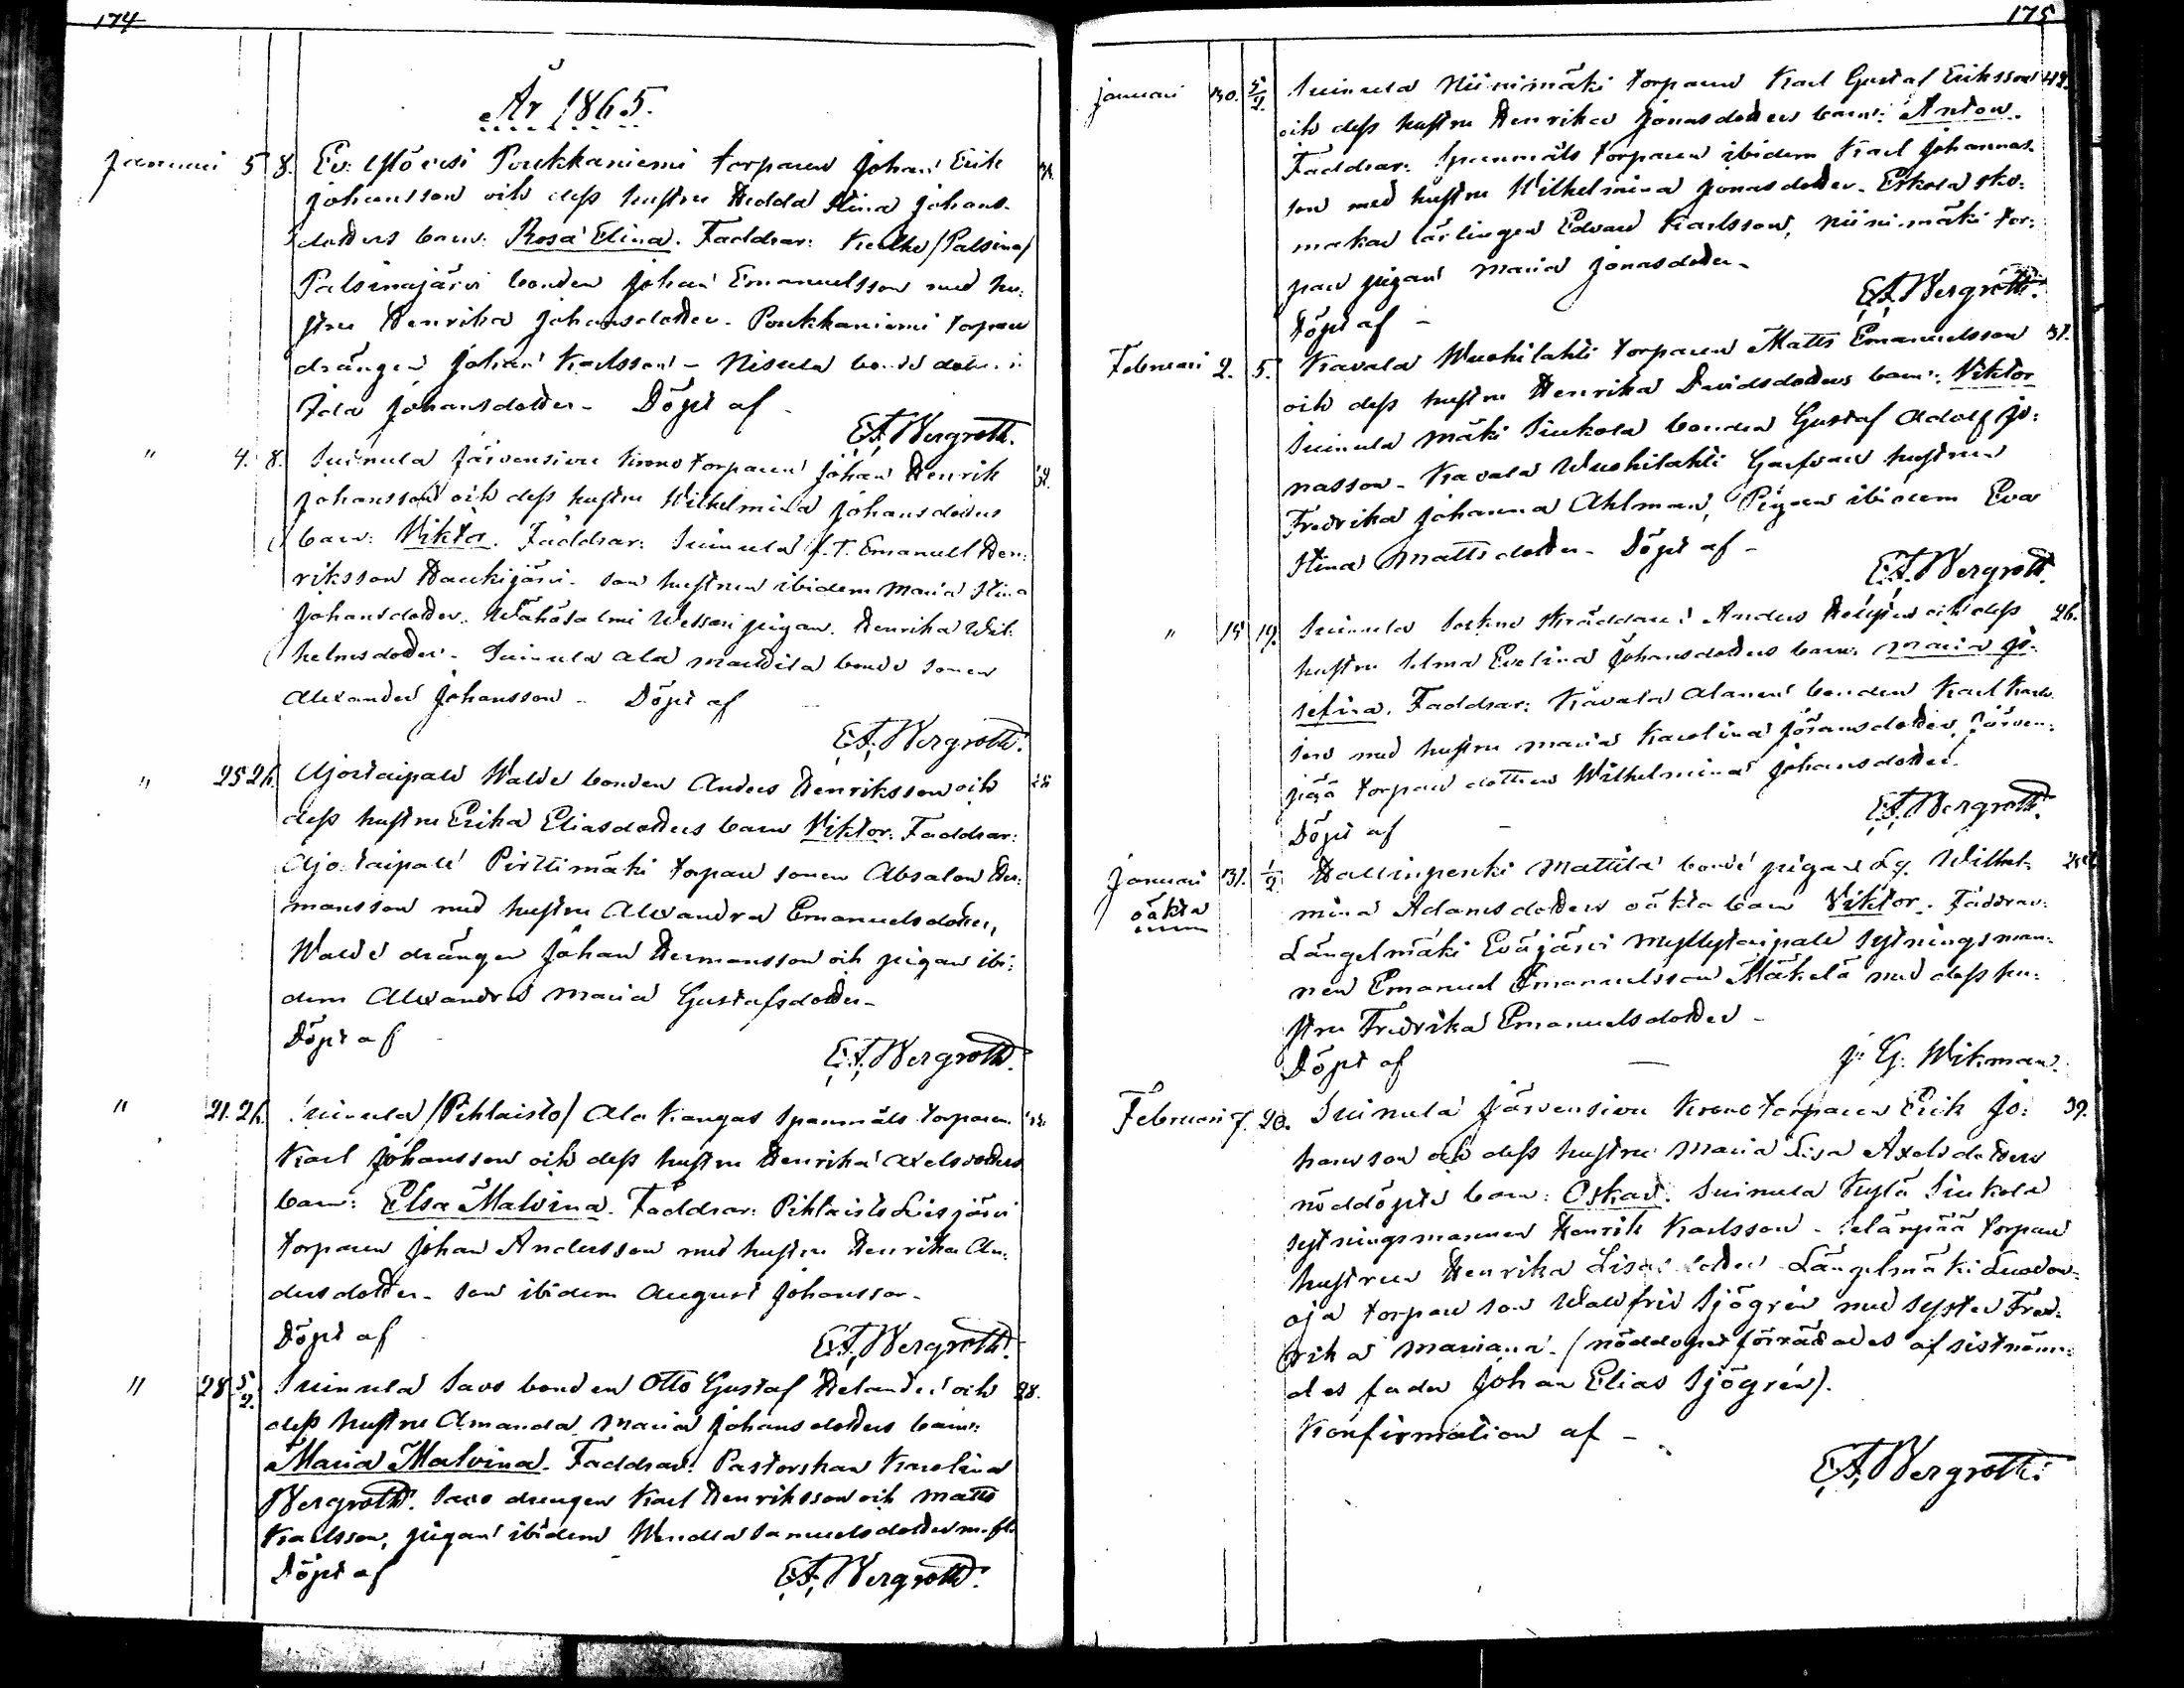 174
År 1865.
Januari 5 8. Ev: Ystövesi Poukkaniemi torparen Johan Erik
Johansson och dess hustru Hedda Stina Johans-
dotters barn: Rosa Elina. Faddrar: /Palsina/
Palsinajärvi bonden Johan Emanuelsson med hu-
stru Henrika Johansdotter. Poukkaniemi torpare
drängen Johan Karlsson - Nisula bonde dottern
Ida Johansdotter - Döpt af -
E.A. Bergroth.
" 4. 8. Suinula Järvensivu Krono torparen Johan Henrik
Johansson och dess hustru Wilhelmina Johansdotters
barn: Viktor. Faddrar: Suinula f.T. Emanuel Hen-
riksson Haukijärvi - son hustrun ibidem Maria Stina
Johansdotter. Wähäsalmi Wessari pigan Henrika Wil-
helmsdotter - Suinula Ala Mattila bonde sonen
Alexander Johansson - Döpt af
E.A. Bergroth.
" 25 26. Ajostaipale Walde bonden Anders Henriksson och
dess hustru Erika Eliasdotters barn Viktor. Faddrar:
Ajostaipale Pirttimäki torpare sonen Absalon Her-
mansson med hustru Alexandra Emanuelsdotter,
Walde drängen Johan Hermansson och pigan ibi-
dem Alexandra Maria Gustafsdotter -
Döpt af
E.A. Bergroth.
" 21. 26. Suinula /Pihlaisto/ Ala Kangas Spanmåls torparen
Karl Johansson och dess hustru Henrika Axelsdotters
barn: Elsa Malvina. Faddrar: Pihlaisto Liesjärvi
torparen Johan Andersson med hustru Henrika An-
dersdotter - son ibidem August Johansson -
Döpt af
E.A. Bergroth.
" 28 5/2. Suinula Savo bonden Otto Gustaf Helander och 28.
dess hustru Amanda Maria Johansdotters barn:
Maria Malvina. Faddrar: Pastorskan Karolina
Bergroth. Savo drengen Karl Henriksson och Matts
Karlsson, pigan ibidem Wendla Samuelsdotter m.fl.
Döpt af
E.A. Bergroth.
175
Januari 30. 5/2. Suinula Niinimäki torparen Karl Gustaf Eriksson
och dess hustru Henrika Jonasdotters barn: Anton.
Faddrar: Spanmåls torparen ibidem Karl Johannes-
son med hustru Wilhelmina Jonasdotter - Eskola sko-
makar lärlingen Edvard Karlsson, Niinimäki tor-
pare pigan Maria Jonasdotter -
Döpt af -
E.A. Bergroth.
Februari 2. 5. Kavala Wuohilahti torparen Matts Emanuelsson 37.
och dess hustru Henrika Davidsdotters barn: Viktor
Suinula Mäki Siukola bonden Gustaf Adolf Jo-
nasson - Kavala Wuohilahti hustrun
Fredrika Johanna Ahlman, Pigan ibidem Eva
Stina Mattsdotter - Döpt af -
E.A. Bergroth.
" 15 19. Suinula Sockne Skräddaren Anders och dess 26.
hustru Selma Evelina Johansdotters barn: Maria Jo-
sefina. Faddrar: Kavala Alanen bonden Karl Karls-
son med hustru Maria Karolina Göransdotter, Järven-
pää torpare dottern Wilhelmina Johansdotter.
Döpt af -
E.A. Bergroth.
Januari 31. 1/2. Hallinpenki Mattila bonde pigan Lg. Wilhel-
oäkta mina Adamsdotters oäkta barn Viktor. Faddrar:
Längelmäki Eväjärvi Myllytaipale Sytningsman-
nen Emanuel Emanuelsson Mäkelä med dess hu-
stru Fredrika Emanuelsdotter -
Döpt af - J: G: Wikman.
Februari 7. 20. Suinula Järvensivu Krono torparen Erik Jo- 39.
hansson och dess hustru Maria Lisa Axelsdotters
nöddöpta barn: Oskar. Suinula Kylä Siukola
sytningsmannen Henrik Karlsson - torpare
hustrun Henrika Längelmäki
oja torpare son Walfrid Sjögrén med syster Fred-
rika Mariana. (nöddopet förrättades af sistnämn-
des fader Johan Elias Sjögrén).
Konfirmation af -
E.A. Bergroth.